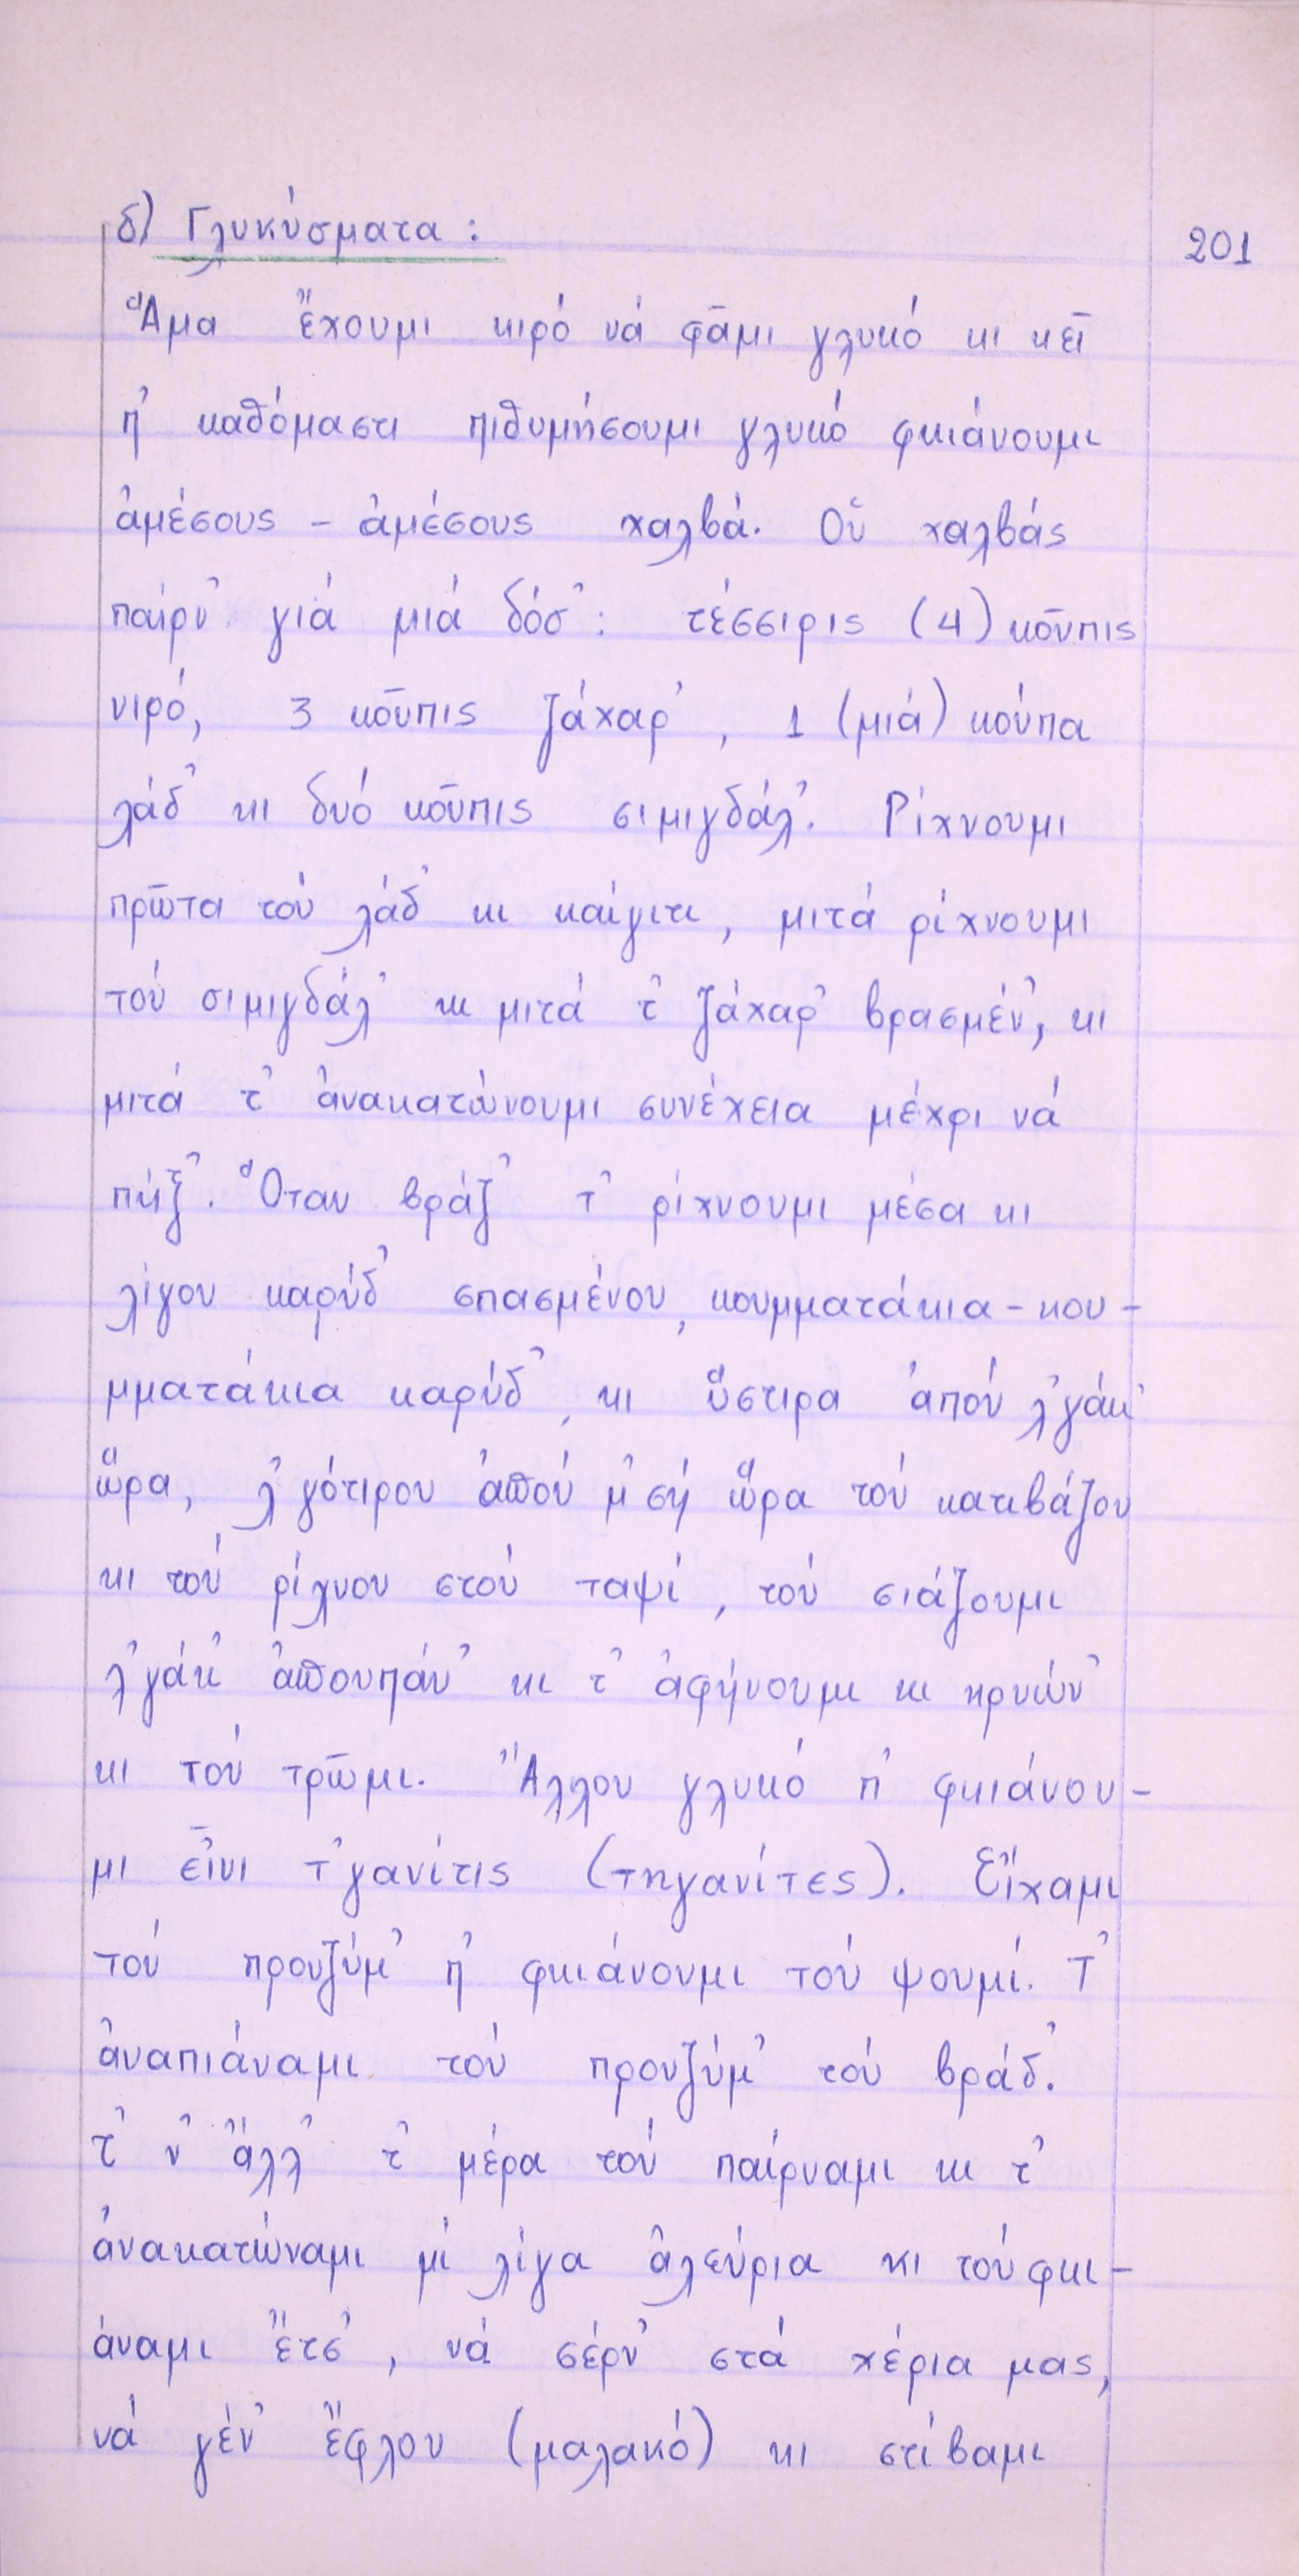 δ) Γλυκύσματα :
201
Ἅμα ἔχουμι κιρό νά φᾶμι γλυκό κι κεῖ
π᾿ καθόμαστι πιθυμήσουμι γλυκό φκιάνουμι
ἀμέσους - ἀμέσους χαλβά. Οὑ χαλβάς
παίρν᾿ γιά μιά δόσ᾿: τέσσιρις (4) κοῦπις
νιρό, 3 κοῦπις ζάχαρ᾿, 1 (μιά) κούπα
λάδ᾿ κι δυό κοῦπις σιμιγδάλ᾿. Ρίχνουμι
πρῶτα τού λάδ᾿ κι καίγιτι, μιτά ρίχνουμι
τού σιμιγδάλ᾿ κι μιτά τ᾿ ζάχαρ᾿ βρασμέν᾿, κι
μιτά τ᾿ ἀνακατώνουμι συνέχεια μέχρι νά
πήξ᾿. Ὅταν βράζ᾿ τ᾿ ρίχνουμι μέσα κι
λίγου καρύδ᾿ σπασμένου, κουμματάκια - κου-
μματάκια καρύδ᾿, κι ὕστιρα ἀπού λ᾿γάκ᾿
ὥρα, λ᾿γότιρου ἀπού μ᾿σή ὥρα τού κατιβάζου
κι τού ρίχνου στού ταψί, τού σιάζουμι
λ᾿γάκ᾿ ἀπουπάν᾿ κι τ᾿ ἀφήνουμι κι κρυών᾿
κι τού τρῶμι. Ἄλλου γλυκό π᾿ φκιάνου-
μι εἶνι τ᾿γανίτις (τηγανίτες). Εἴχαμι
τού προυζύμ᾿ π᾿ φκιάνουμι τού ψουμί. Τ᾿
ἀναπιάναμι τού προυζύμ᾿ τού βράδ᾿.
τ᾿ ν᾿ ἄλλ᾿ τ᾿ μέρα τού παίρναμι κι τ᾿
ἀνακατώναμι μί λίγα ἀλεύρια κι τού φκι-
άναμι ἔτσ᾿, νά σέρν᾿ στά χέρια μας,
νά γέν᾿ ἔφλου (μαλακό) κι στίβαμι